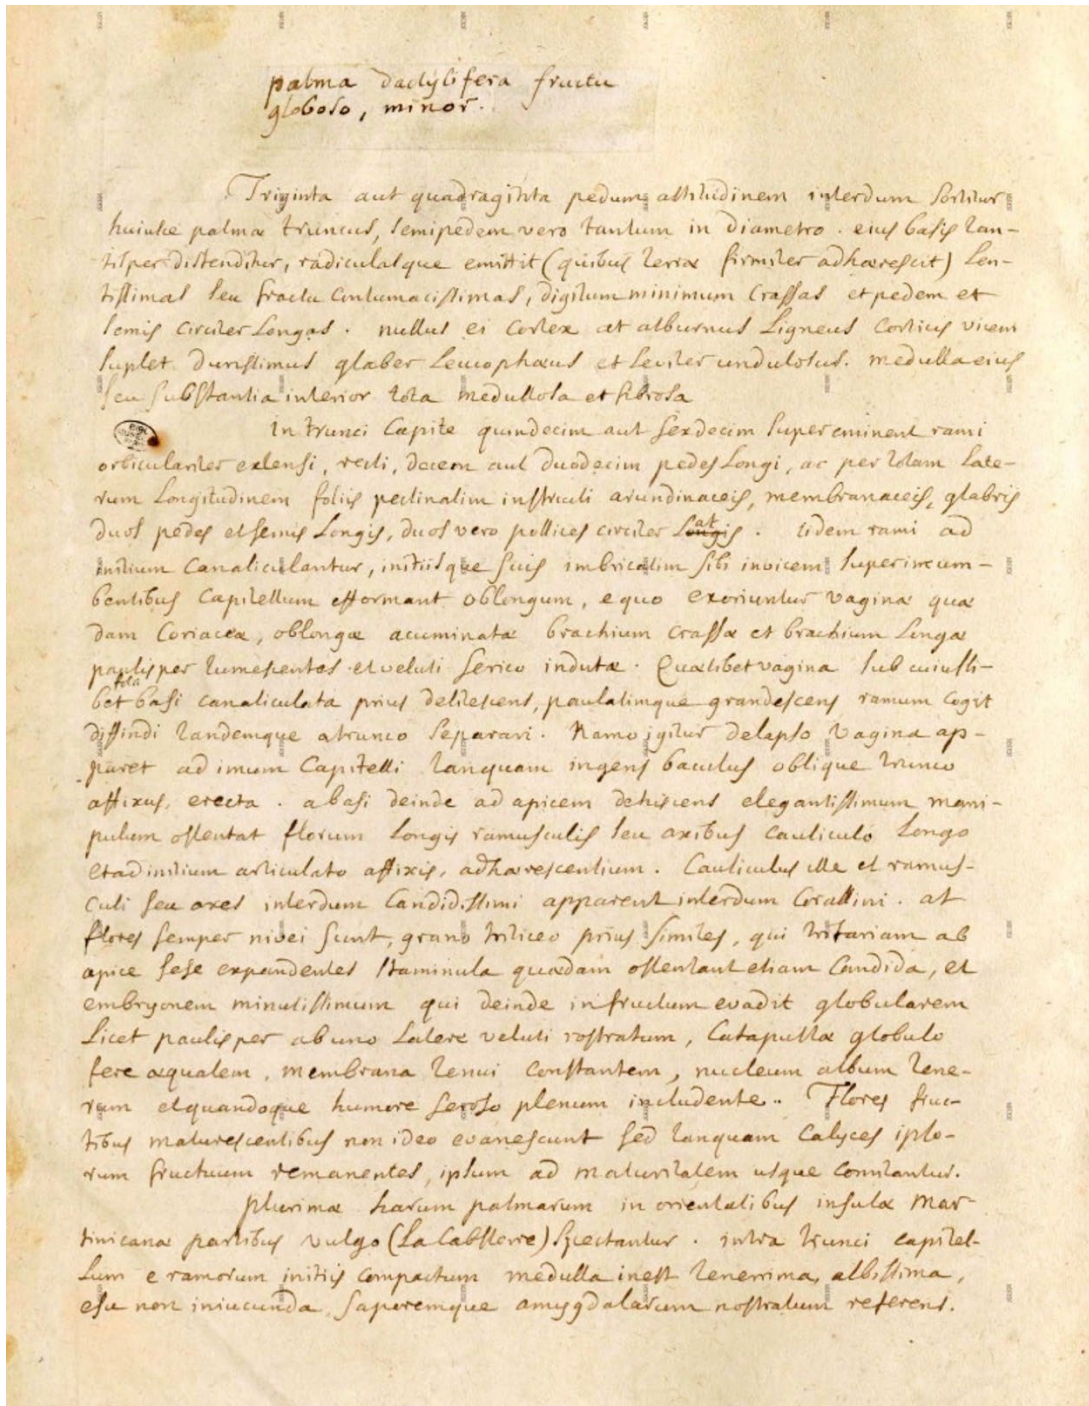 palma dactylifera fructu
globoso, minor.
Triginta aut quadraginta pedum altitudinem interdum sortitur
huiusce palmæ truncus, semipedem vero tantum in diametro. eius basis tan-
tisper distenditur, radiculasque emittit (quibus terræ firmiter adhærescit) len-
tissimas seu fractu contumacissimas, digitum minimum crassas et pedem et
semis circiter longas. nullus ei cortex at alburnus ligneus corticis vicem
suplet durissimus glaber leucophæus et leviter undulosus. medulla eius
seu substantia interior tota medullosa et fibrosa
In trunci capite quindecim aut sexdecim supereminent rami
orbiculariter extensi, recti, decem aut duodecim pedes longi, ac per totam late-
rum longitudinem foliis pectinatim instructi arundinaceis, membranaceis, glabris
duos pedes et semis longis, duos vero pollices circiter latis. iidem rami ad
initium canaliculantur, initiisque suis imbricatim sibi invicem superincum-
bentibus capitellum efformant oblongum, e quo exoriuntur vaginæ quæ
dam coriaceæ, oblongæ acuminatæ brachium crassæ et brachium longæ
paulisper tumescentes et veluti serico indutæ. Quælibet vagina sub cuiusli-
bet basi canaliculata prius delitescens, paulatimque grandescens ramum cogit
diffindi tandemque a trunco separari. Ramo igitur delapso vagina ap-
paret ad imum capitelli tanquam ingens baculus oblique trunco
affixus, erecta. a basi deinde ad apicem dehiscens elegantissimum mani-
pulum ostentat florum longis ramusculis seu axibus cauliculo longo
et ad initium articulato affixis, adhærescentium. Cauliculus ille et ramus-
culi seu axes interdum candidissimi apparent interdum corallini. at
flores semper nivei sunt, grano triticeo prius similes, qui trifariam ab
apice sese expandentes staminula quædam ostentant etiam candida, et
embryonem minutissimum qui deinde in fructum evadit globularem
licet paulisper ab uno latere veluti rostratum, catapultæ globulo
fere æqualem, membrana tenui constantem, nucleum album tene-
rum et quandoque humore seroso plenum includente. Flores fruc-
tibus maturescentibus non ideo evanescunt sed tanquam calyces ipso-
rum fructuum remanentes, ipsum ad maturitatem usque comitantur.
plurimæ harum palmarum in orientalibus insulæ Mar-
tinicanæ partibus vulgo (La Cabsterre) spectantur. intra trunci capitel-
lum e ramorum initiis compactum medulla inest tenerrima, albissima,
esu non iniucunda, saporemque amygdalarum nostratum referens.